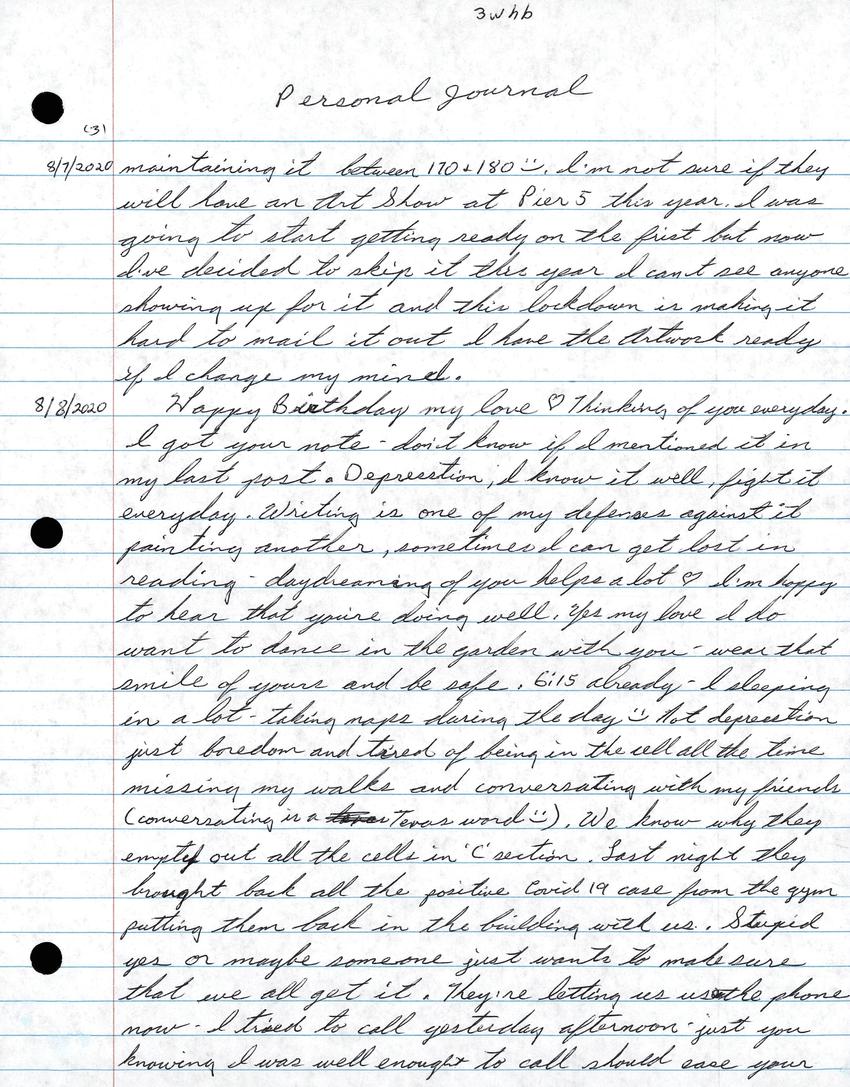 3whb
Personal Journal
(3)
8/7/2020 maintaining it between 170 + 180 :). I'm not sure if they
will have an Art Show at Pier 5 this year. I was
going to start getting ready on the frist but now
I've decided to skip it this year I can't see anyone
showing up for it and this lockdown is making it
hard to mail it out I have the Artwork ready
if I change my mind.
8/8/2020 Happy Birthday my love ♡ Thinking of you everyday.
I got your note - don't know if I mentioned it in
my last post. Deprecition, I know it well, fight it
everyday. Writing is one of my defenses against it
painting another, sometimes I can get lost in
reading - daydreaming of you helps a lot ♡ I'm happy
to hear that you're doing well. Yes my love I do
want to dance in the garden with you - wear that
smile of yours and be safe. 6:15 already - I sleeping
in a lot - taking naps during the day :) Not deprecetion
just boredom and tired of being in the cell all the time
missing my walks and conversating with my friends
(conversating is a Texas word :)). We know why they
empty out all the cells in 'C' section. Last night they
brought back all the positive Covid 19 case from the gym
putting them back in the building with us. Stupid
yes or maybe someone just wants to make sure
that we all get it. They're letting us use the phone
now - I tried to call yesterday afternoon - just you
knowing I was well enought to call should ease your